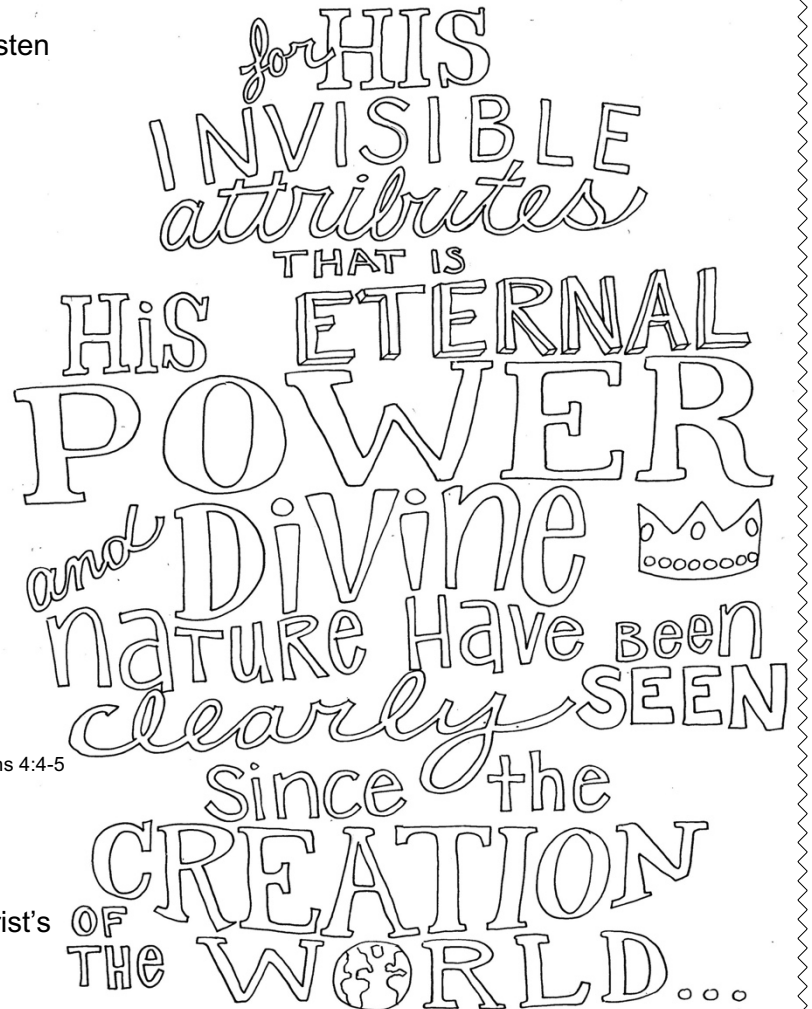 sten
for HIS
INVISIBLE
attributes
THAT IS
HiS ETERNAL
POWER
and DiViNe
NaTURe Have Been
clearly SEEN
ns 4:4-5
Since the
CREATION
rist's
OF
THe WORLD...